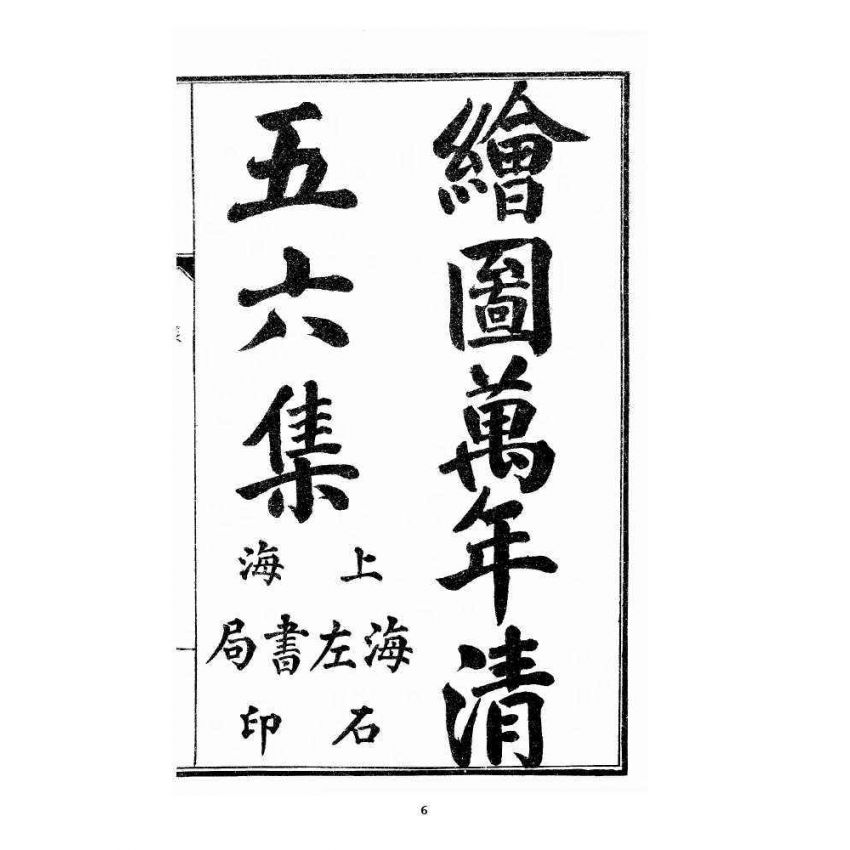 繪圖萬年清
五六集
上海
海左書局
石印
6